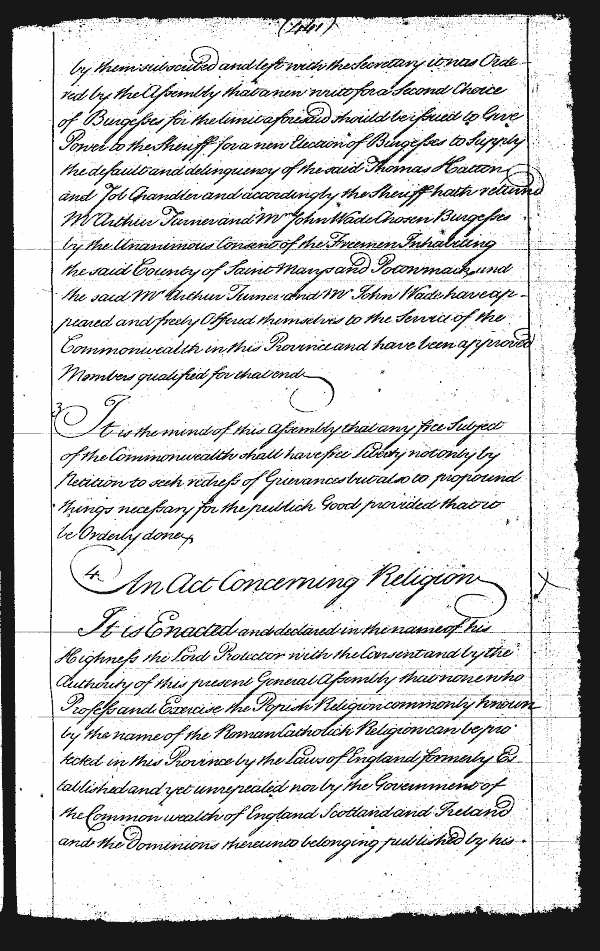 (441)
by them subscribed and left with the Secretary it was Orde-
red by the Assembly that a new writt for a Second Choice
of Burgesses for the limit aforesaid should be issued to Give
Power to the Sheriff for a new Election of Burgesses to Supply
the default and delinquency of the said Thomas Hatton
and Job Chandler and accordingly the Sheriff hath returnd
Mr Arthur Turner and Mr John Wade Chosen Burgesses
by the Unanimous Consent of the Freemen Inhabiting
the said County of Saint Marys and Potowmack, and
the said Mr Arthur Turner and Mr John Wade have ap-
peared and freely Offered themselves to the Service of the
Commonwealth in this Province and have been approved
Members qualified for that end
3 It is the mind of this Assembly that any free Subject
of the Commonwealth shall have free Liberty not only by
Petition to seek redress of Grievances but also to propound
things necessary for the publick Good provided that it
be Orderly done
4 An Act Concerning Religion
It is Enacted and declared in the name of his
Highness the Lord Protector with the Consent and by the
Authority of this present General Assembly that none who
Profess and Exercise the Popish Religion commonly known
by the name of the Roman Catholick Religion can be pro-
tected in this Province by the Laws of England formerly Es-
tablished and yet unrepealed nor by the Government of
the Common wealth of England Scotland and Ireland
and the Dominions thereunto belonging published by his